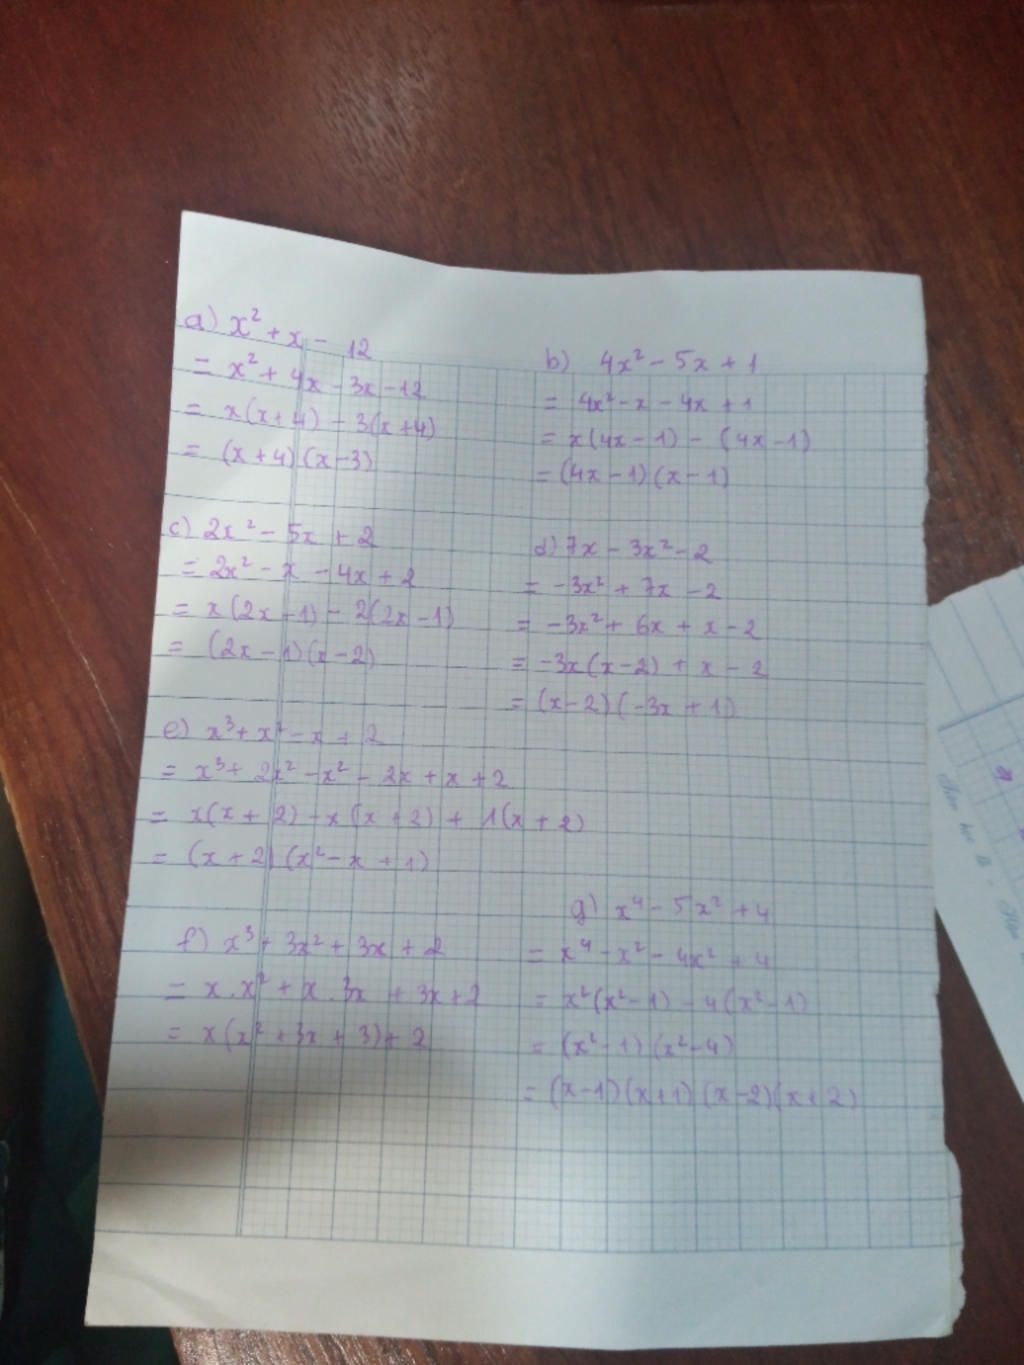 a) x² + x - 12
= x² + 4x - 3x - 12
= x(x+4) - 3(x+4)
= (x+4)(x-3)
b) 4x² - 5x + 1
= 4x² - x - 4x + 1
= x(4x - 1) - (4x - 1)
= (4x - 1)(x - 1)
c) 2x² - 5x + 2
= 2x² - x - 4x + 2
= x(2x - 1) - 2(2x - 1)
= (2x - 1)(x - 2)
d) 7x - 3x² - 2
= -3x² + 7x - 2
= -3x² + 6x + x - 2
= -3x(x-2) + x - 2
= (x-2)(-3x + 1)
e) x³ + x² - x + 2
= x³ + 2x² - x² - 2x + x + 2
= x(x + 2) - x(x + 2) + 1(x + 2)
= (x + 2)(x² - x + 1)
f) x³ + 3x² + 3x + 2
= x . x² + x . 3x + 3x + 2
= x(x² + 3x + 3) + 2
g) x⁴ - 5x² + 4
= x⁴ - x² - 4x² + 4
= x²(x² - 1) - 4(x² - 1)
= (x² - 1)(x² - 4)
= (x-1)(x+1)(x-2)(x+2)